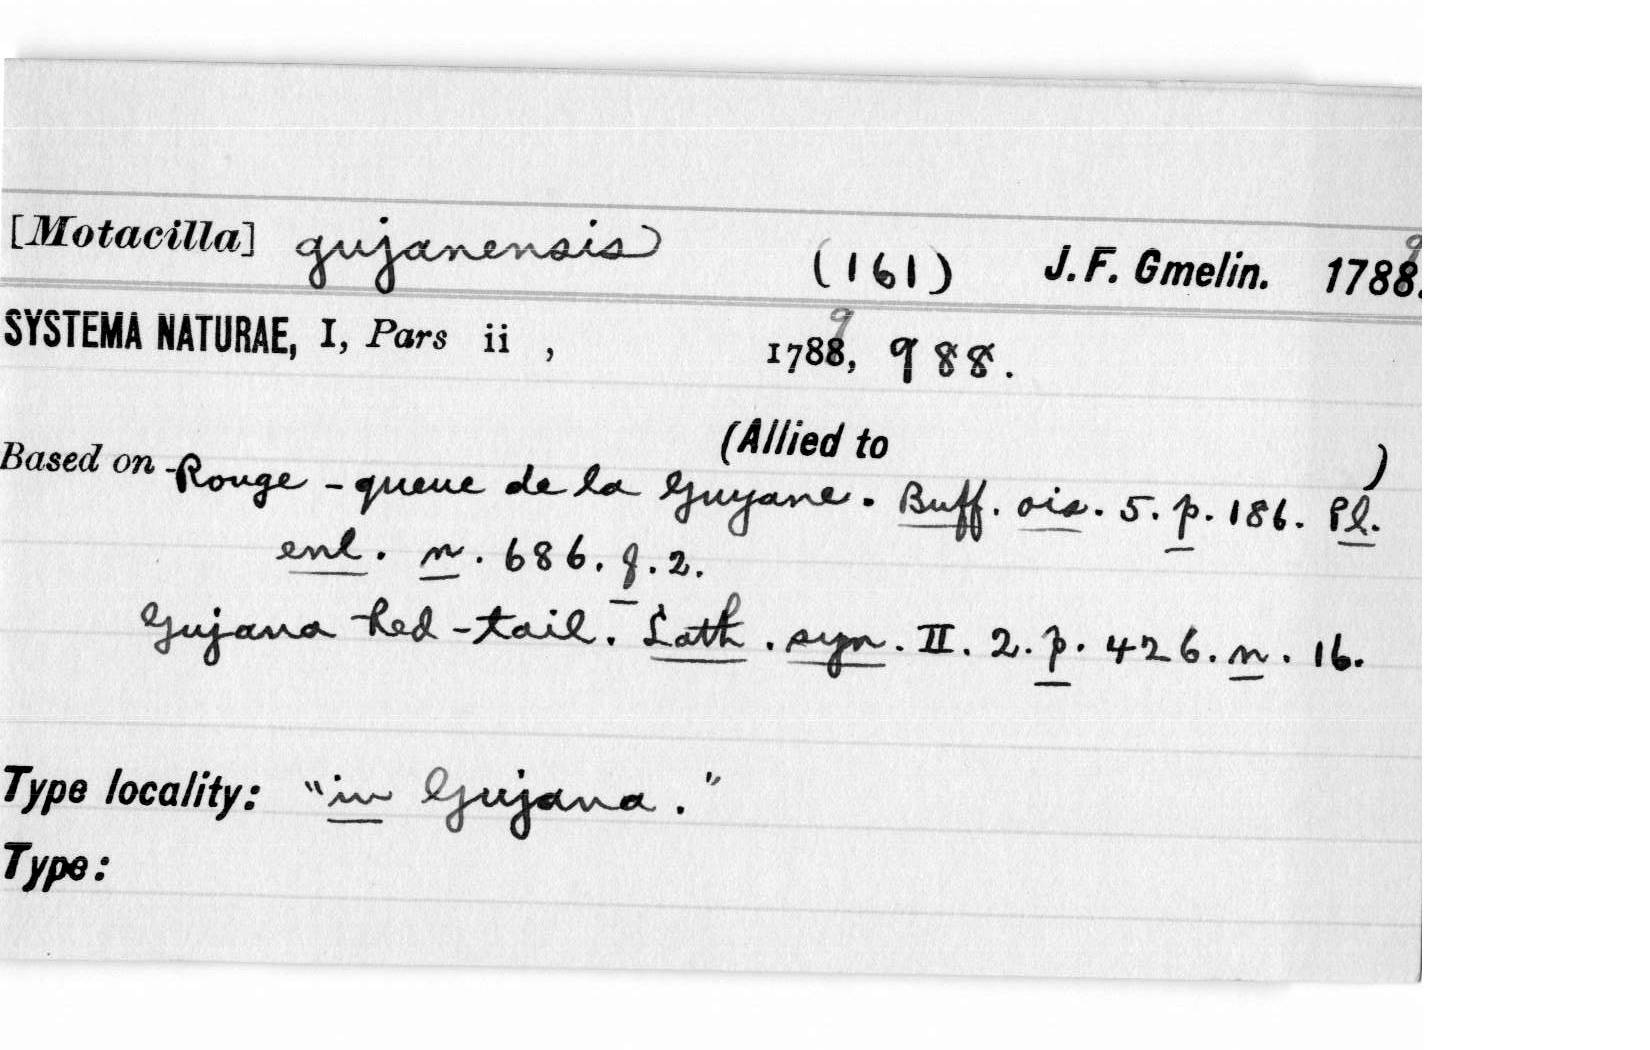 [Motacilla] gujanensis (161) J. F. Gmelin. 1788.9
SYSTEMA NATURAE, I, Pars ii , 1788,9 988.
(Allied to )
Based on Rouge-queue de la Guyane. Buff. ois. 5. p. 186. Pl.
enl. n. 686. f. 2.
Gujana Red-tail. Lath. syn. II. 2. p. 426. n. 16.
Type locality: "in Gujana."
Type: